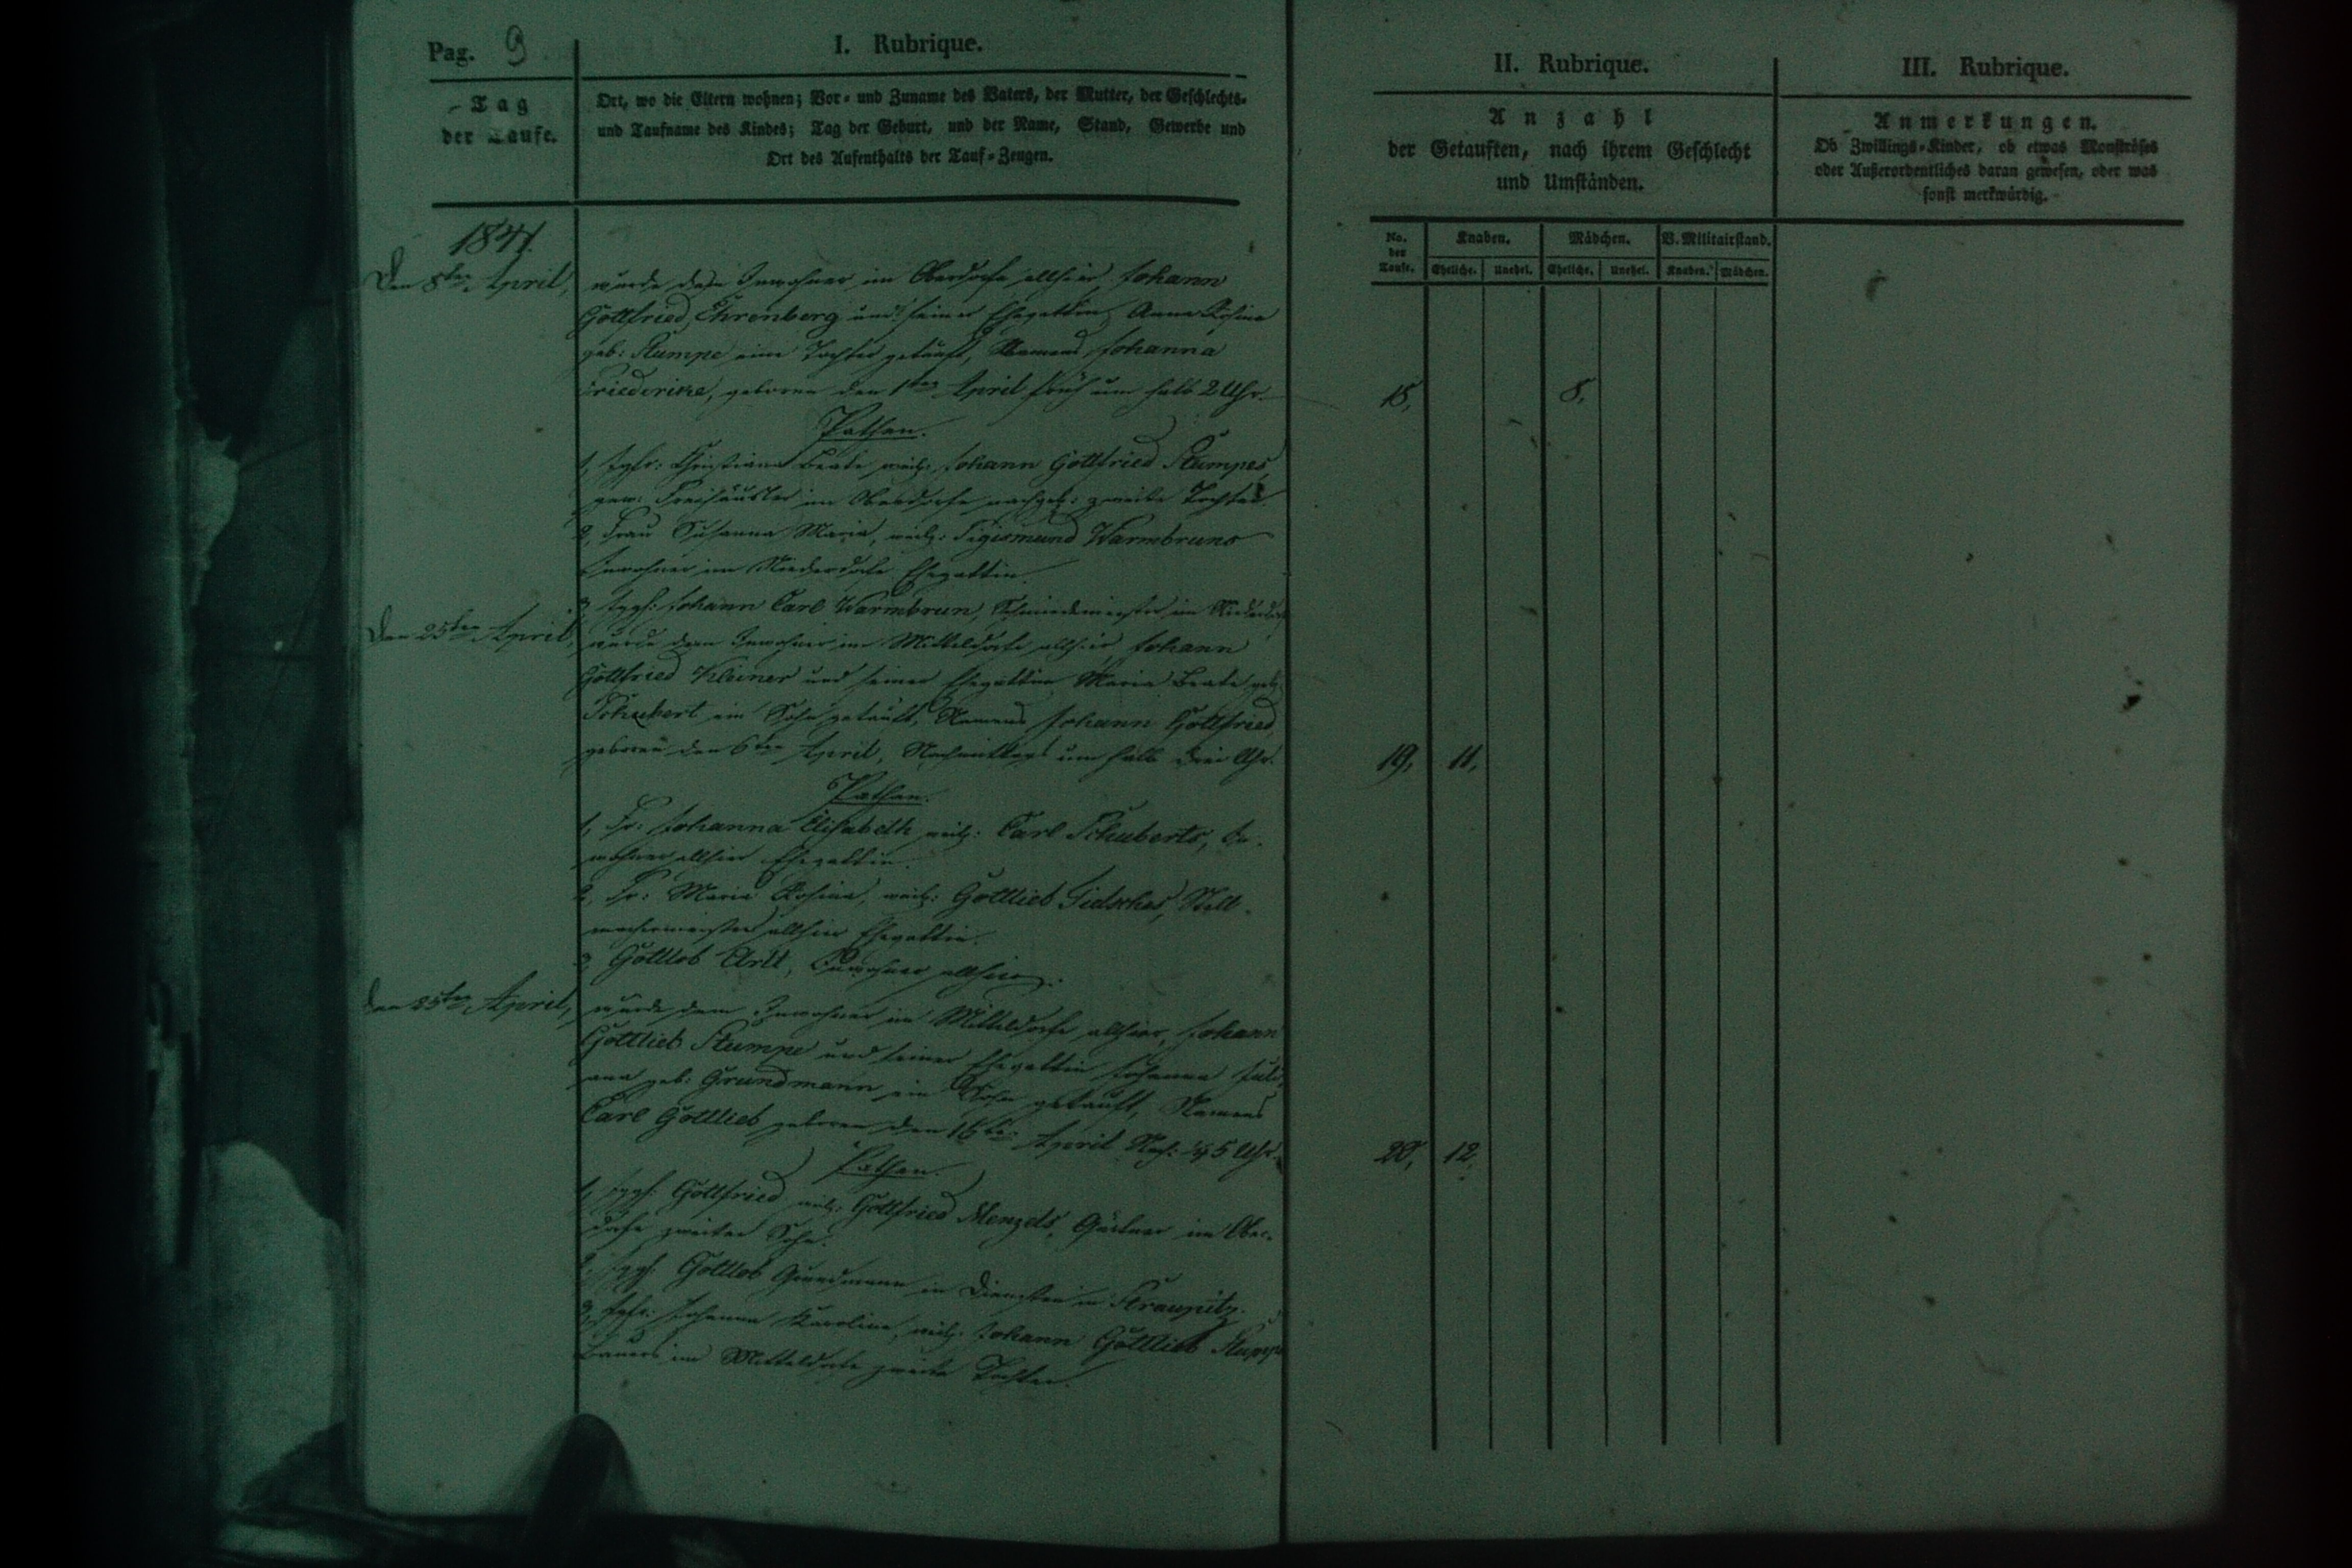 Pag. 9
I. Rubrique.
Tag
der Taufe.
Ort, wo die Eltern wohnen; Vor- und Zuname des Vaters, der Mutter, der Geschlechts-
und Taufname des Kindes; Tag der Geburt, und der Name, Stand, Gewerbe und
Ort des Aufenthalts der Tauf-Zeugen.
1841.
Den 8ten April, wurde dem Inwohner im Oberdorfe allhier, Johann
Gottfried Ehrenberg und seiner Ehegattin Anna Rosina
geb: Stumpe eine Tochter getauft, Namens Johanna
Friederike, geboren den 1ten April früh um halb 2 Uhr.
Pathen.
1, Jgfr: Christiane Beate weil: Johann Gottfried Stumpes,
gew: Freihäusler im Oberdorfe nachgel: zweite Tochter.
2, Frau Susanna Maria, Sigismund Warmbruns
Inwohner im Niederdorfe Ehegattin.
3, Jggs: Johann Carl Warmbrun, Schmiedemeister im
Den 25ten April, wurde dem Inwohner im Mitteldorfe allhier Johann
Gottfried Kleiner und seiner Ehegattin Maria Beate geb:
Schubert ein Sohn getauft, Namens Johann Gottfried
geboren den 6ten April, Nachmittags um halb drei Uhr.
Pathen.
1, Fr: Johanna Elisabeth Carl Schuberts, In-
wohner allhier Ehegattin.
2, Fr: Maria Rosina, Gottlieb Stell-
machermeister allhier Ehegattin.
3, Gottlob Arlt, Inwohner allhier.
Den 25ten April, wurde dem Inwohner im Mitteldorfe allhier, Johann
Gottlieb Stumpe und seiner Ehegattin Johanna Juli-
ana geb: Grundmann ein Sohn getauft, Namens
Carl Gottlieb geboren den 16ten April Nach: 5 Uhr.
Pathen.
1, Jggs: Gottfried Gottfried Menzels, Gärtner im Ober-
dorfe zweiter Sohn.
2, Jggs: Gottlob Grundmann in Diensten in Straupitz.
3, Jgfr: Johanne Karoline, Johann Gottlieb Stumpe
Bauers im Mitteldorfe zweite Tochter.
II. Rubrique.
Anzahl
der Getauften, nach ihrem Geschlecht
und Umständen.
No. der Taufe. Knaben. Mädchen. V. Militairstand.
Eheliche. Unehel. Eheliche. Unehel. Knaben. Mädchen.
18, 8,
19, 11,
20, 12,
III. Rubrique.
Anmerkungen.
Ob Zwillings-Kinder, ob etwas Monströses
oder Außerordentliches daran gewesen, oder was
sonst merkwürdig.